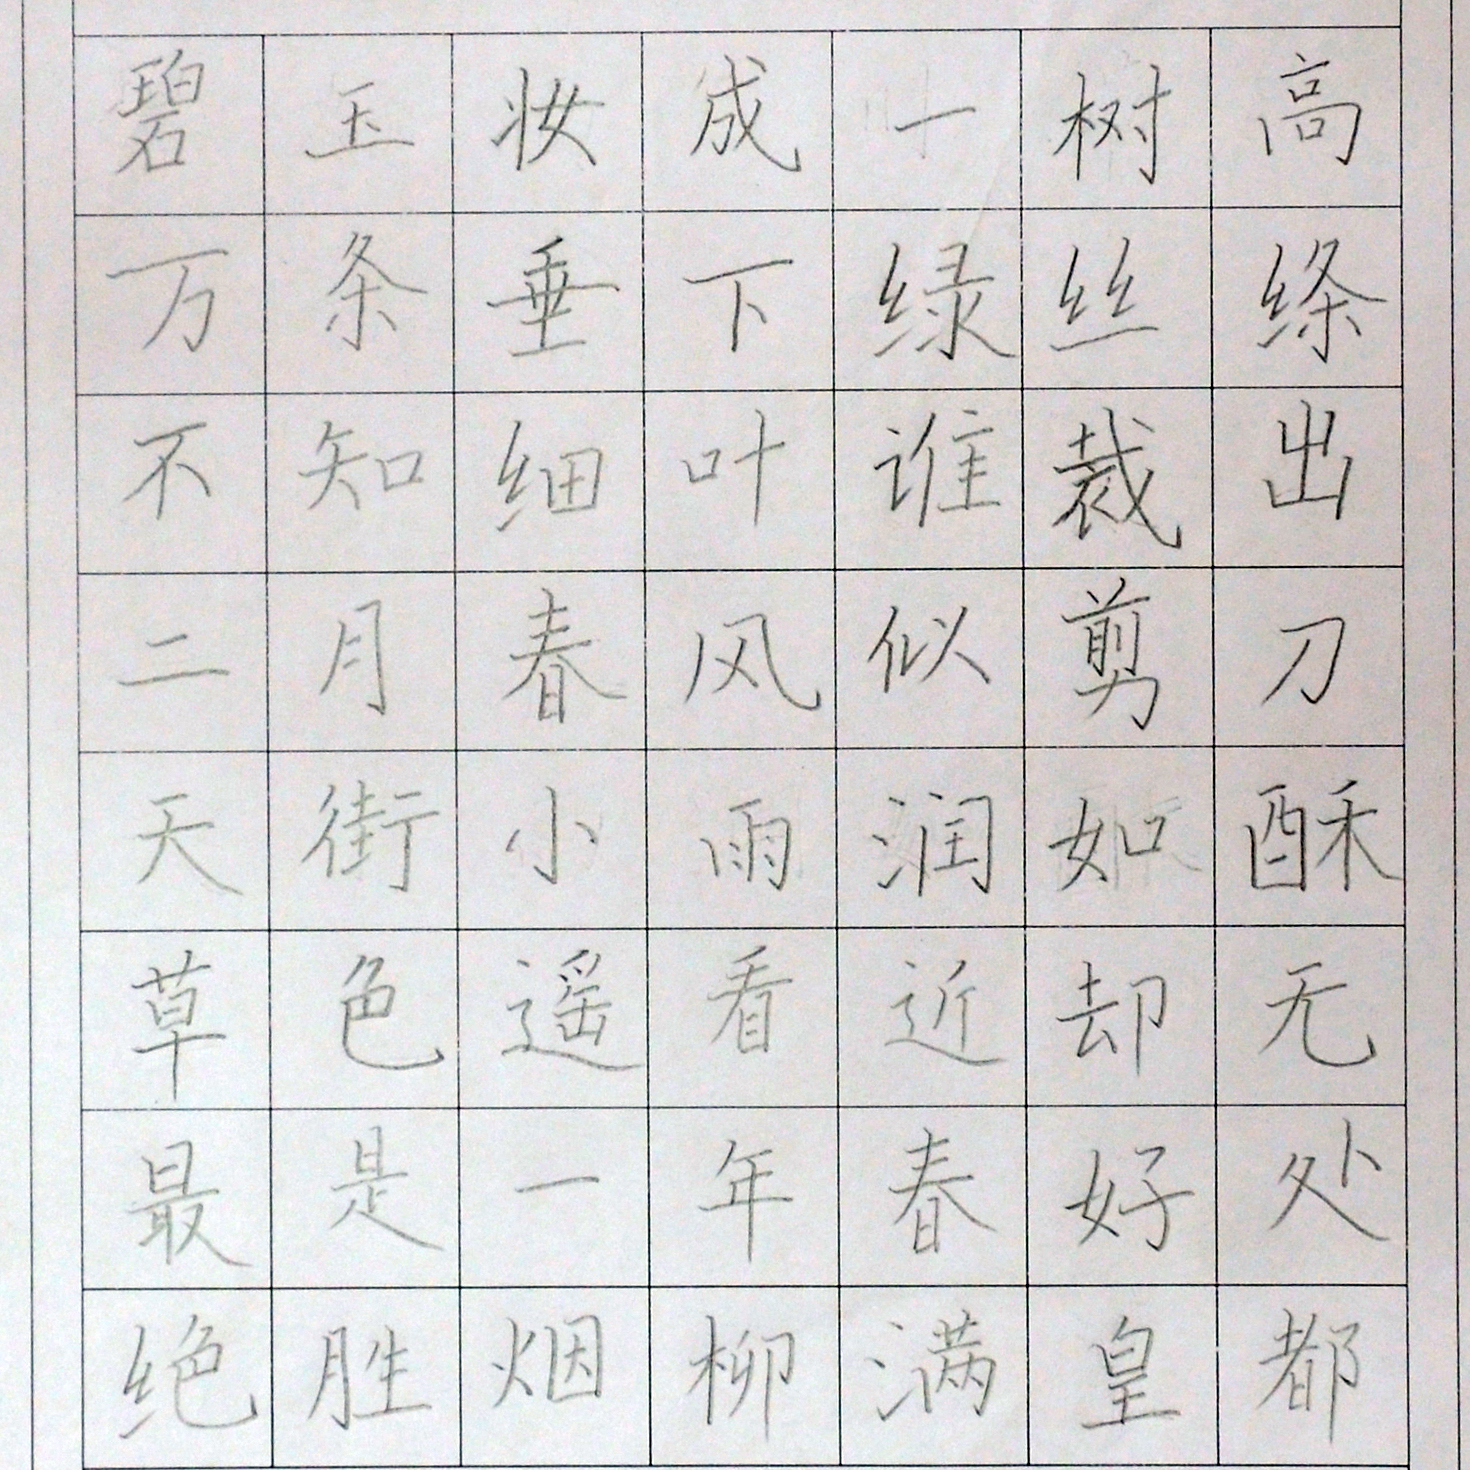 碧玉妆成一树高
万条垂下绿丝绦
不知细叶谁裁出
二月春风似剪刀
天街小雨润如酥
草色遥看近却无
最是一年春好处
绝胜烟柳满皇都